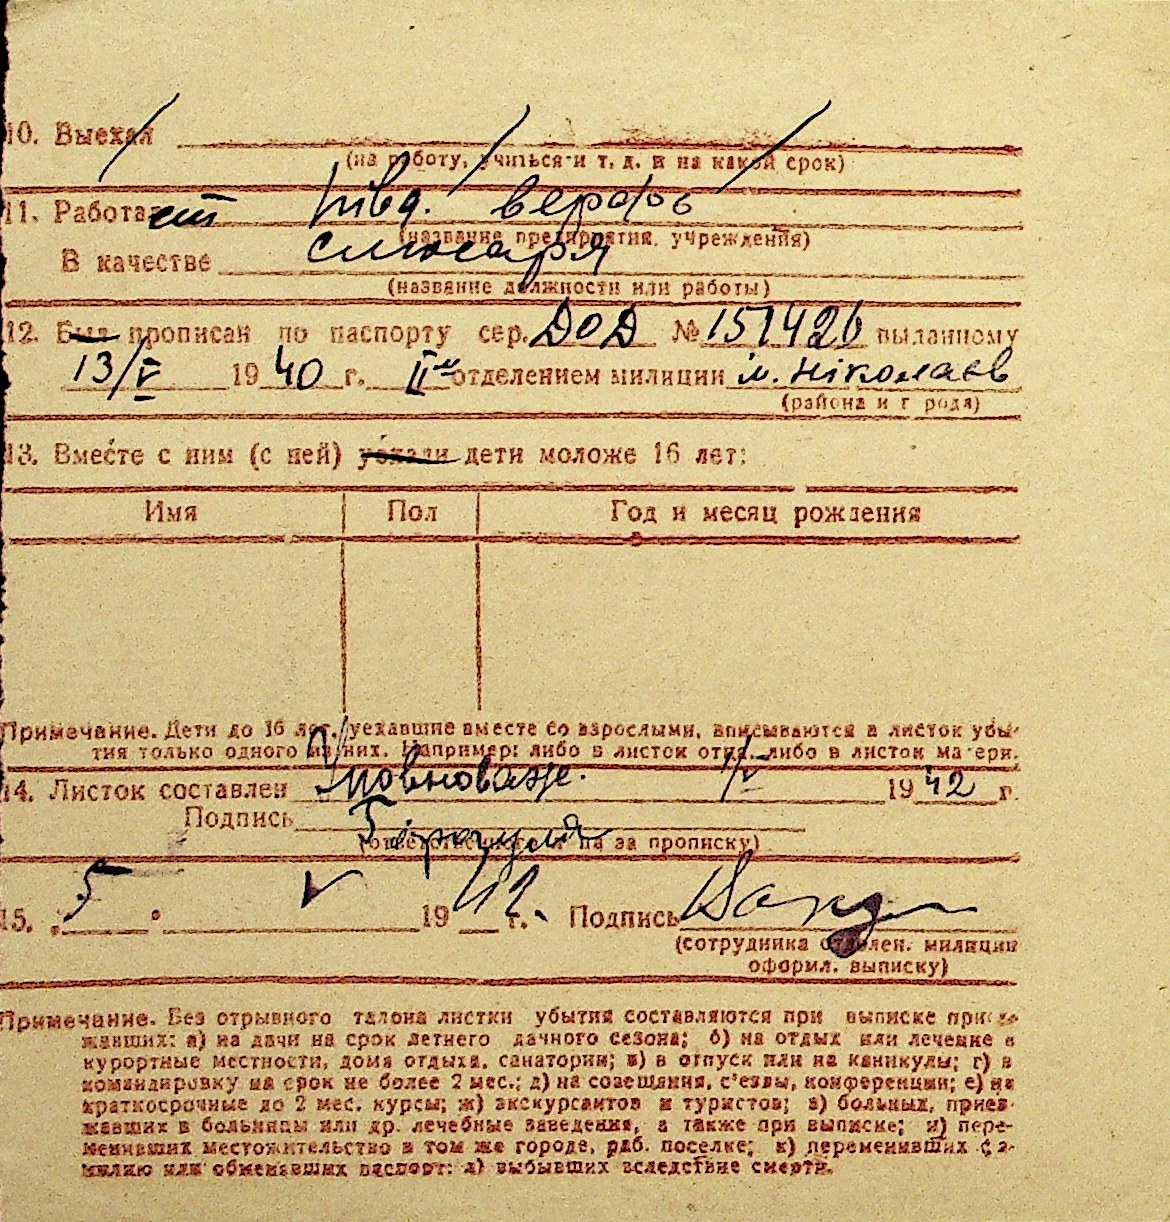 10. Выехал
(на работу, учиться и т. д. и на какой срок)
11. Работает Півд. верфь
(название предприятия, учреждения)
В качестве слюсаря
(название должности или работы)
12. Был прописан по паспорту сер. ДОД № 151426 выланному
13/V 1940 г. II отделением милиции м. Ніколаєв
(района и г рода)
13. Вместе с ним (с ней) уехали дети моложе 16 лет:
Имя Пол Год и месяц рождения
Примечание. Дети до 16 лет, уехавшие вместе со взрослыми, вписываются в листок убы-
тия только одного из них. Например: либо в листок отца, либо в листок матери.
14. Листок составлен Уповноваж. 1/V 1942 г.
Подпись
(ответственного за прописку)
15. 5 V 1942 г. Подпись
(сотрудника отделен. милиции
оформил. выписку)
Примечание. Без отрывного талона листки убытия составляются при выписке приез-
жавших: а) на дачи на срок летнего дачного сезона; б) на отдых или лечение в
курортные местности, дома отдыха, санатории; в) в отпуск или на каникулы; г) в
командировку на срок не более 2 мес.; д) на совещания, с'езды, конференции; е) на
краткосрочные до 2 мес. курсы; ж) экскурсантов и туристов; з) больных, приез-
жавших в больницы или др. лечебные заведения, а также при выписке; и) пере-
менивших местожительство в том же городе, раб. поселке; к) переменивших фа-
милию или обменявших паспорт; л) выбывших вследствие смерти.